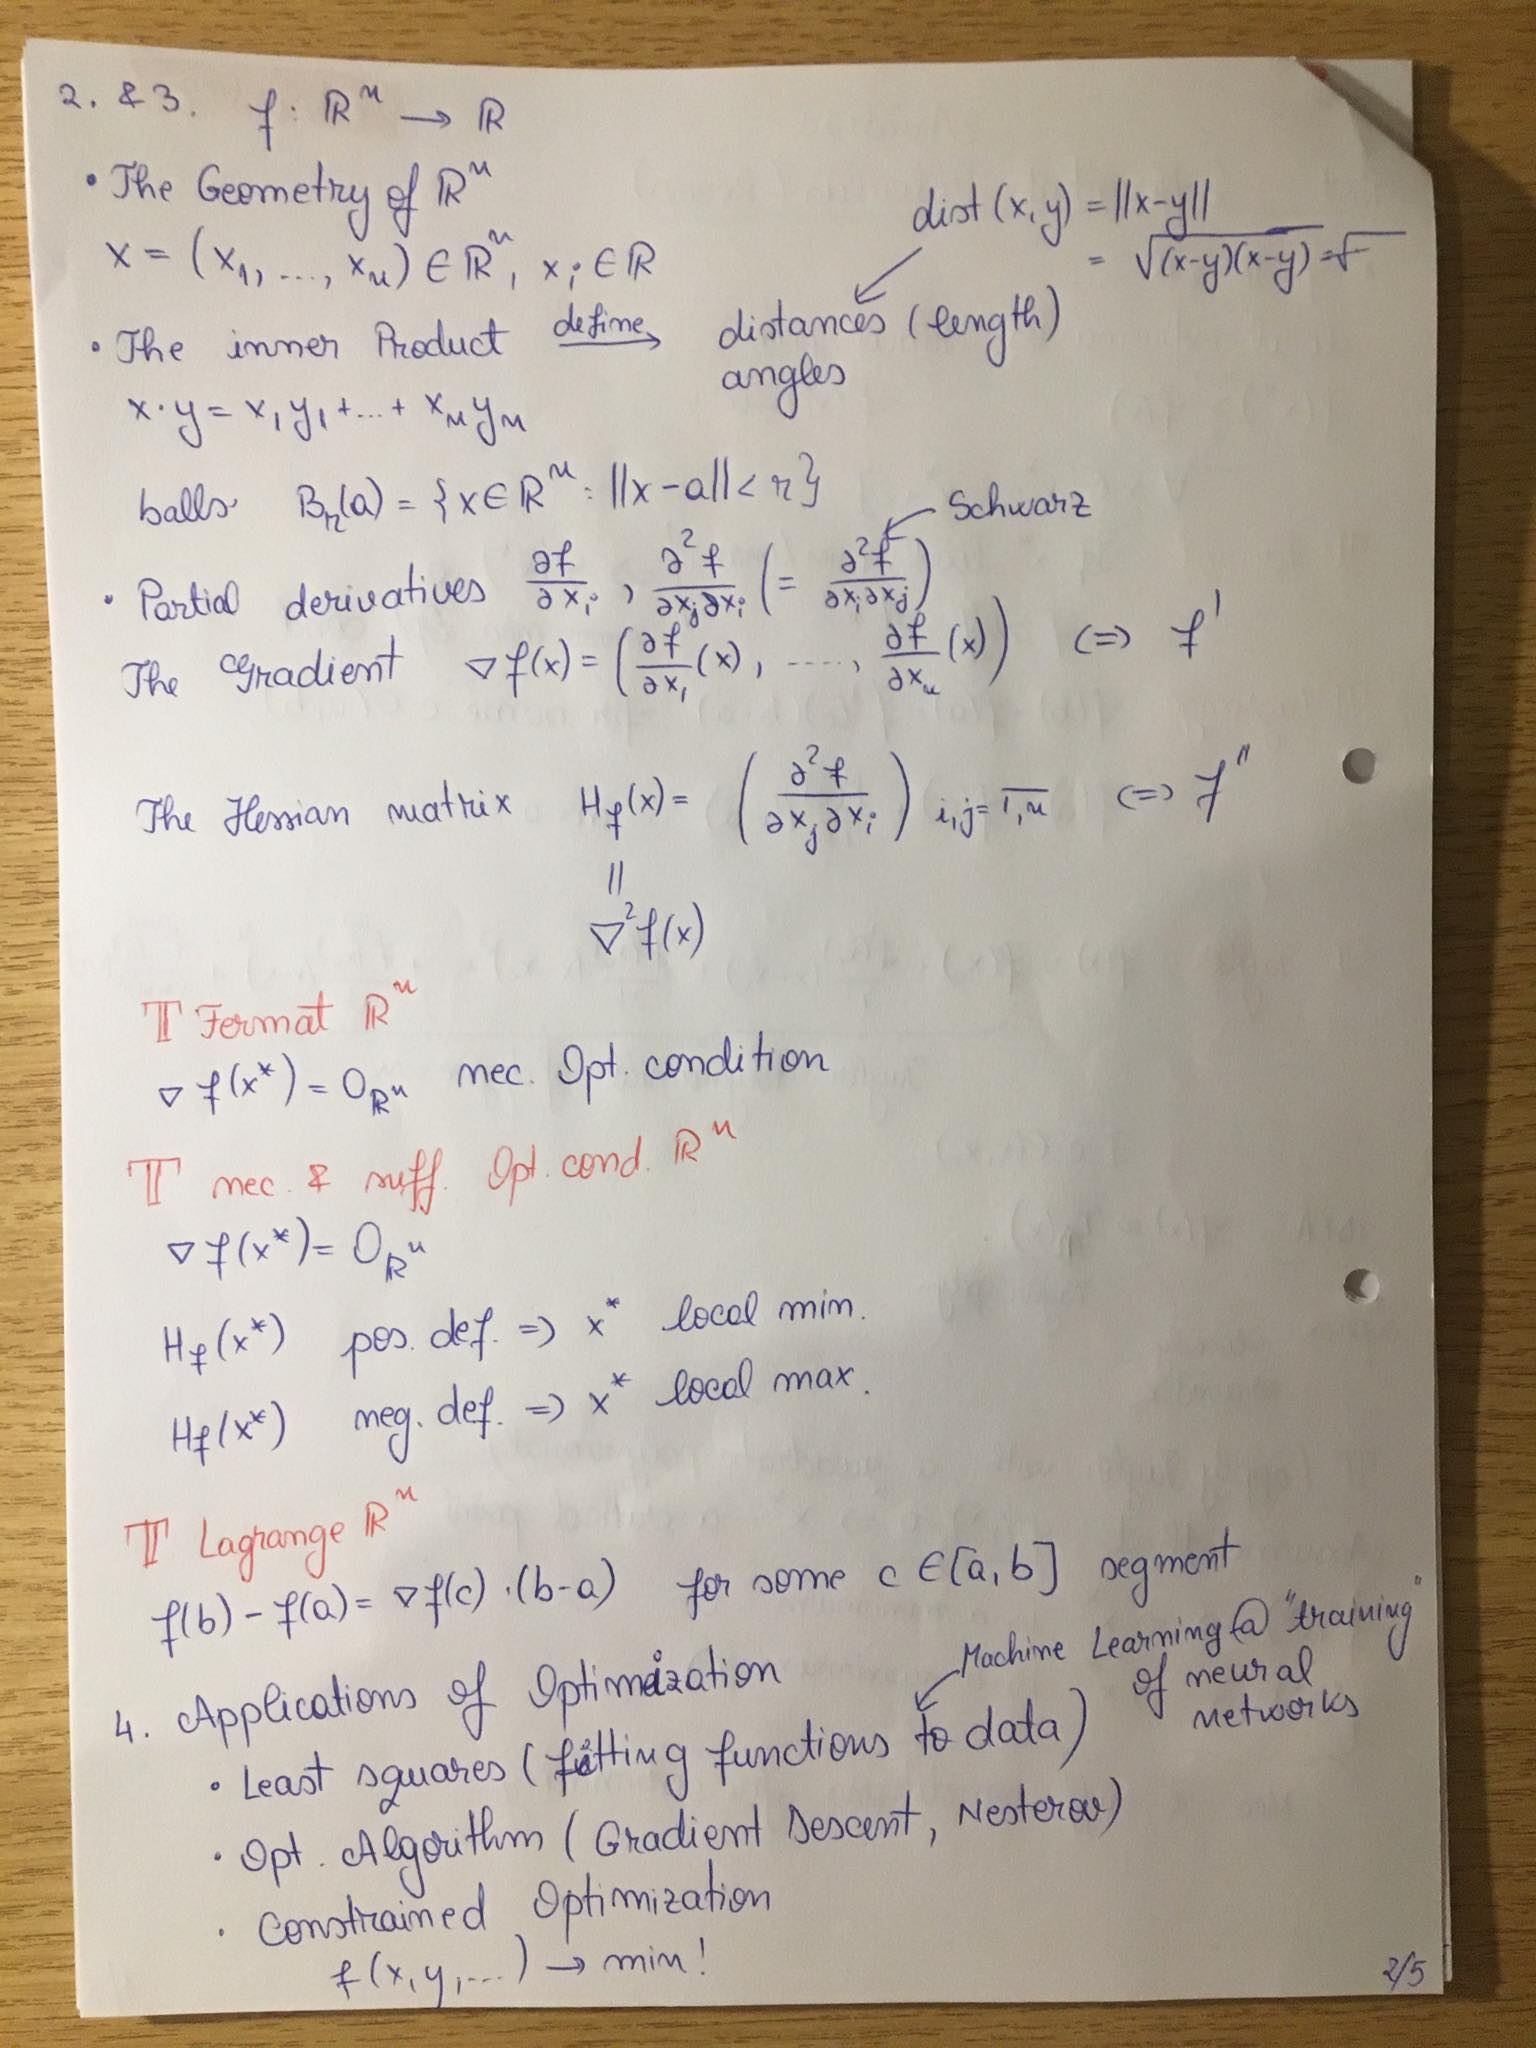 2. & 3. f: ℝⁿ → ℝ
• The Geometry of ℝⁿ
x = (x₁, ..., xₙ) ∈ ℝⁿ, xᵢ ∈ ℝ
dist (x, y) = ||x-y||
= √(x-y)(x-y) = √
• The inner Product define→ distances (length)
angles
x·y = x₁y₁ + ... + xₙyₙ
balls Bᵣ(a) = {x ∈ ℝⁿ : ||x-a|| < r}
Schwarz
• Partial derivatives ∂f/∂xᵢ, ∂²f/∂xⱼ∂xᵢ (= ∂²f/∂xᵢ∂xⱼ)
The Gradient ∇f(x) = (∂f/∂x₁ (x), ...., ∂f/∂xₙ (x)) <=> f'
The Hessian matrix H_f(x) = (∂²f/∂xⱼ∂xᵢ) i,j = 1,n <=> f''
||
∇²f(x)
T Fermat ℝⁿ
∇f(x*) = 0_ℝⁿ nec. Opt. condition
T nec. & suff. Opt. cond. ℝⁿ
∇f(x*) = 0_ℝⁿ
H_f(x*) pos. def. => x* local min.
H_f(x*) neg. def. => x* local max.
T Lagrange ℝⁿ
f(b) - f(a) = ∇f(c)·(b-a) for some c ∈ [a, b] segment
Machine Learning @ "training"
of neural
networks
4. Applications of Optimization
• Least squares (fitting functions to data)
• Opt. Algorithm (Gradient Descent, Nesterov)
• Constrained Optimization
f(x, y, ...) → min!
2/5